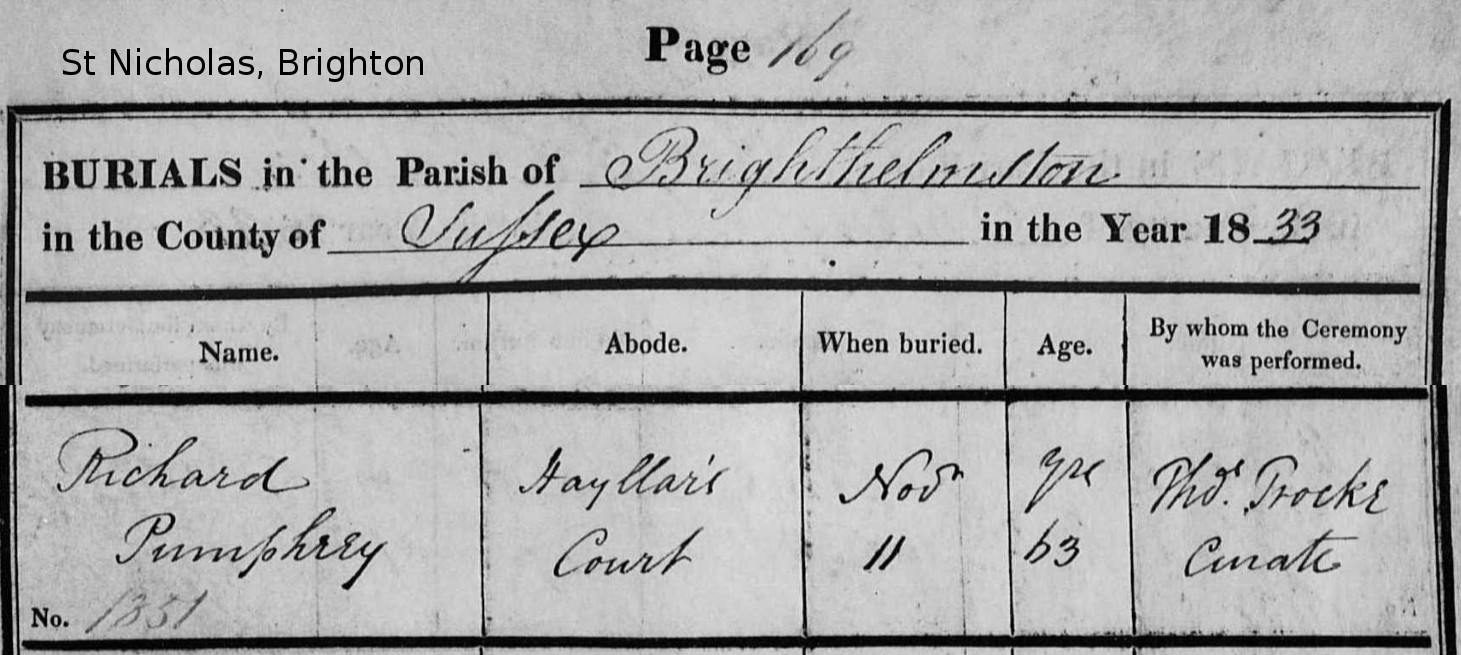 St Nicholas, Brighton
Page 169
BURIALS in the Parish of Brighthelmston
in the County of Sussex in the Year 1833
Name. Abode. When buried. Age. By whom the Ceremony
was performed.
Richard Hayllar's Novr yrs Thos. Trocke
Pumphrey Court 11 63 Curate
No. 1351